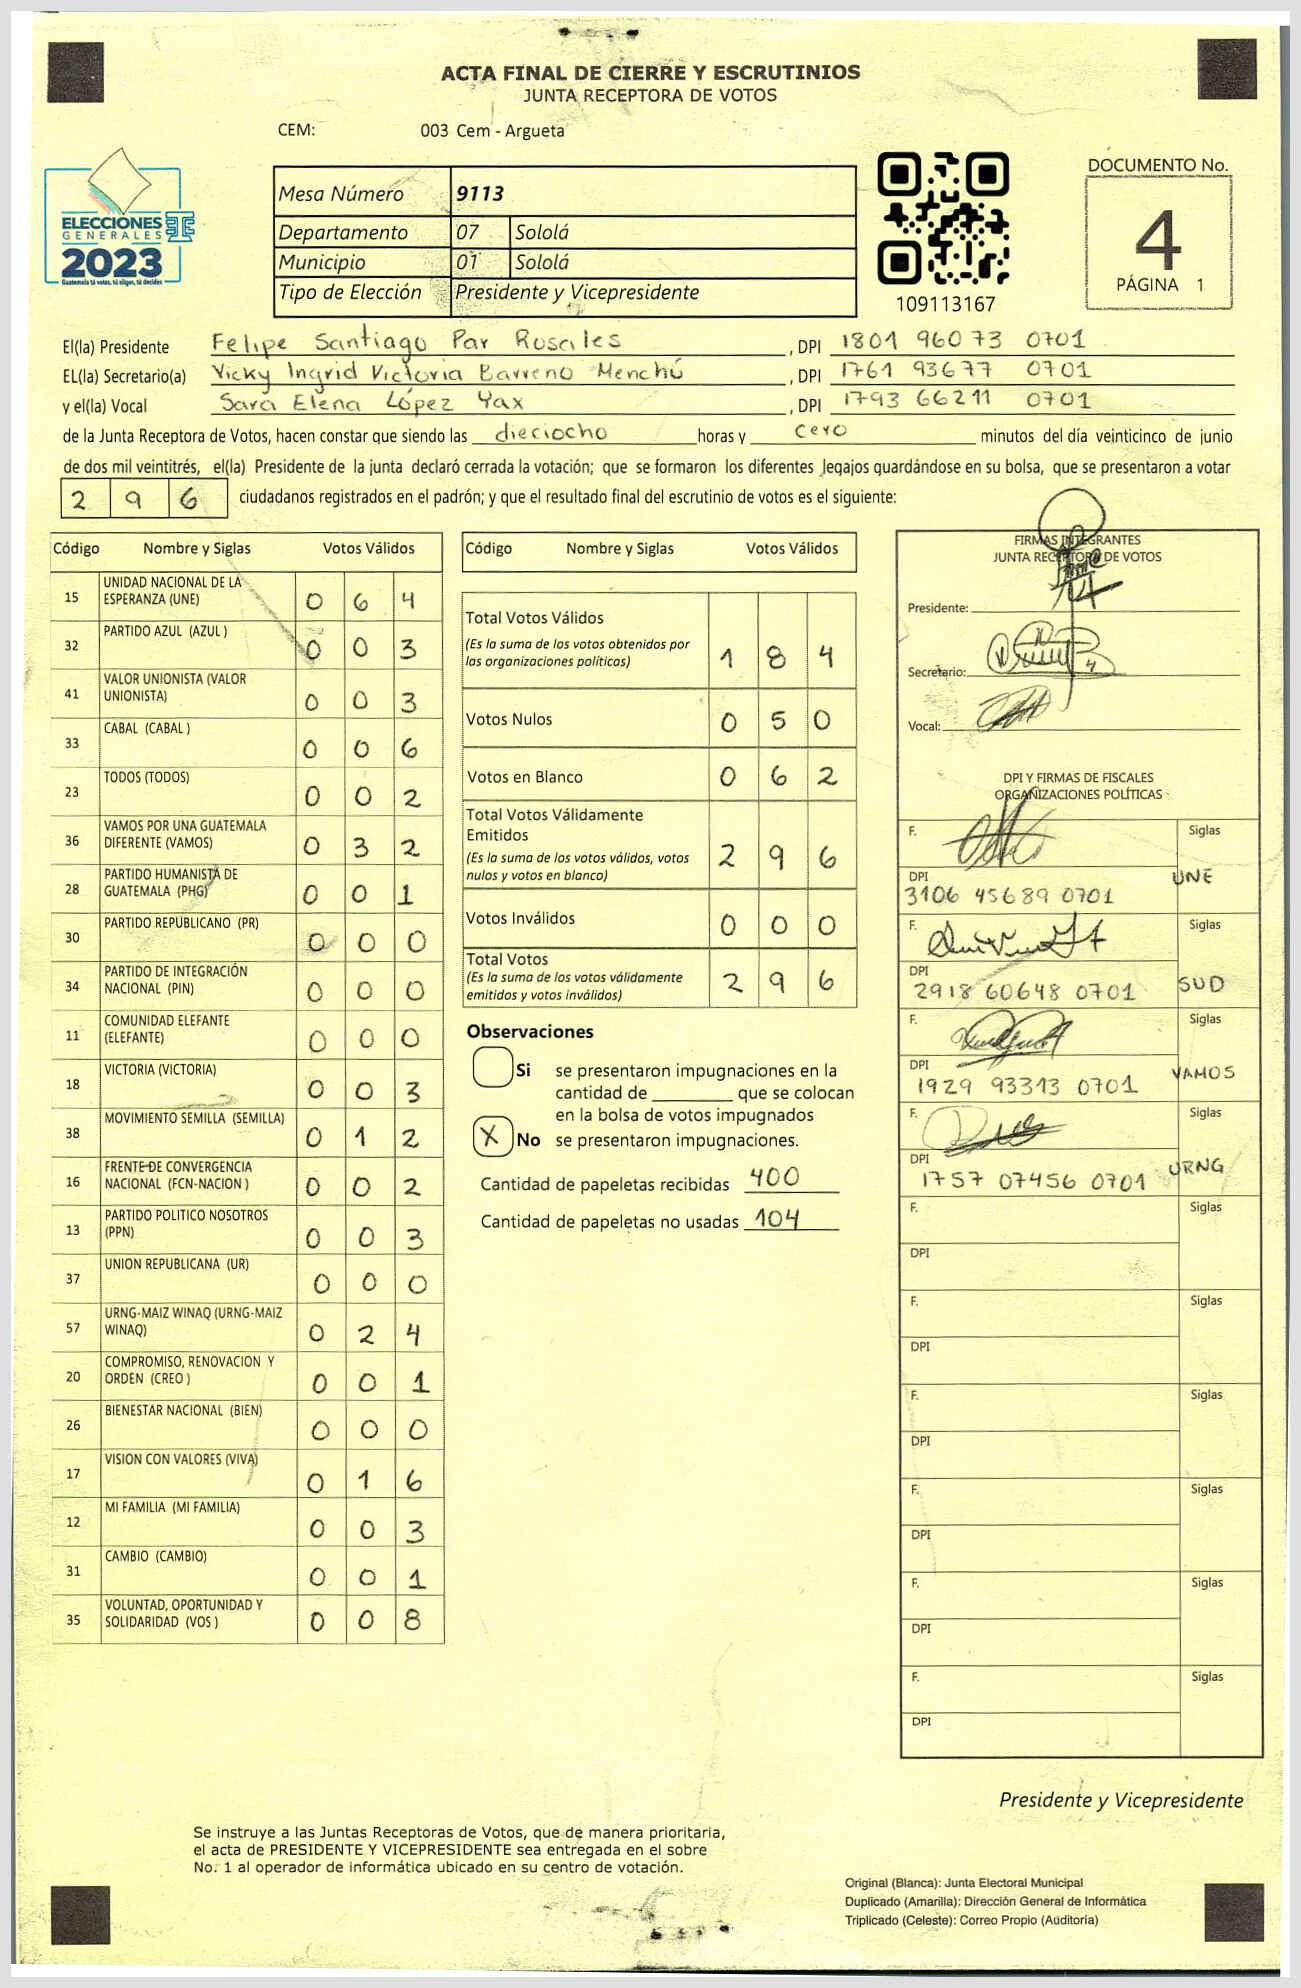 ACTA FINAL DE CIERRE Y ESCRUTINIOS
JUNTA RECEPTORA DE VOTOS
CEM: 003 Cem - Argueta
ELECCIONES
GENERALES
2023
Guatemala tú votas, tú eliges, tú decides
Mesa Número 9113
Departamento 07 Sololá
Municipio 01 Sololá
Tipo de Elección Presidente y Vicepresidente
109113167
DOCUMENTO No.
4
PÁGINA 1
El(la) Presidente Felipe Santiago Par Rosales, DPI 1801 96073 0701
EL(la) Secretario(a) Vicky Ingrid Victoria Barreno Menchú, DPI 1761 93677 0701
y el(la) Vocal Sara Elena López Yax, DPI 1793 66211 0701
de la Junta Receptora de Votos, hacen constar que siendo las dieciocho horas y cero minutos del día veinticinco de junio
de dos mil veintitrés, el(la) Presidente de la junta declaró cerrada la votación; que se formaron los diferentes legajos guardándose en su bolsa, que se presentaron a votar
2 9 6 ciudadanos registrados en el padrón; y que el resultado final del escrutinio de votos es el siguiente:
Código Nombre y Siglas Votos Válidos
15 UNIDAD NACIONAL DE LA ESPERANZA (UNE) 0 6 4
32 PARTIDO AZUL (AZUL ) 0 0 3
41 VALOR UNIONISTA (VALOR UNIONISTA) 0 0 3
33 CABAL (CABAL ) 0 0 6
23 TODOS (TODOS) 0 0 2
36 VAMOS POR UNA GUATEMALA DIFERENTE (VAMOS) 0 3 2
28 PARTIDO HUMANISTA DE GUATEMALA (PHG) 0 0 1
30 PARTIDO REPUBLICANO (PR) 0 0 0
34 PARTIDO DE INTEGRACIÓN NACIONAL (PIN) 0 0 0
11 COMUNIDAD ELEFANTE (ELEFANTE) 0 0 0
18 VICTORIA (VICTORIA) 0 0 3
38 MOVIMIENTO SEMILLA (SEMILLA) 0 1 2
16 FRENTE DE CONVERGENCIA NACIONAL (FCN-NACION ) 0 0 2
13 PARTIDO POLITICO NOSOTROS (PPN) 0 0 3
37 UNION REPUBLICANA (UR) 0 0 0
57 URNG-MAIZ WINAQ (URNG-MAIZ WINAQ) 0 2 4
20 COMPROMISO, RENOVACION Y ORDEN (CREO ) 0 0 1
26 BIENESTAR NACIONAL (BIEN) 0 0 0
17 VISION CON VALORES (VIVA) 0 1 6
12 MI FAMILIA (MI FAMILIA) 0 0 3
31 CAMBIO (CAMBIO) 0 0 1
35 VOLUNTAD, OPORTUNIDAD Y SOLIDARIDAD (VOS ) 0 0 8
Código Nombre y Siglas Votos Válidos
Total Votos Válidos
(Es la suma de los votos obtenidos por
las organizaciones políticas) 1 8 4
Votos Nulos 0 5 0
Votos en Blanco 0 6 2
Total Votos Válidamente
Emitidos
(Es la suma de los votos válidos, votos
nulos y votos en blanco) 2 9 6
Votos Inválidos 0 0 0
Total Votos
(Es la suma de los votos válidamente
emitidos y votos inválidos) 2 9 6
Observaciones
Si se presentaron impugnaciones en la
cantidad de ________ que se colocan
en la bolsa de votos impugnados
X No se presentaron impugnaciones.
Cantidad de papeletas recibidas 400
Cantidad de papeletas no usadas 104
FIRMAS INTEGRANTES
JUNTA RECEPTORA DE VOTOS
Presidente:
Secretario:
Vocal:
DPI Y FIRMAS DE FISCALES
ORGANIZACIONES POLÍTICAS
F. Siglas
DPI UNE
3106 45689 0701
F. Siglas
DPI SUD
2918 60648 0701
F. Siglas
DPI VAMOS
1929 93313 0701
F. Siglas
DPI URNG
1757 07456 0701
F. Siglas
DPI
F. Siglas
DPI
F. Siglas
DPI
F. Siglas
DPI
F. Siglas
DPI
F. Siglas
DPI
Presidente y Vicepresidente
Se instruye a las Juntas Receptoras de Votos, que de manera prioritaria,
el acta de PRESIDENTE Y VICEPRESIDENTE sea entregada en el sobre
No. 1 al operador de informática ubicado en su centro de votación.
Original (Blanca): Junta Electoral Municipal
Duplicado (Amarilla): Dirección General de Informática
Triplicado (Celeste): Correo Propio (Auditoría)